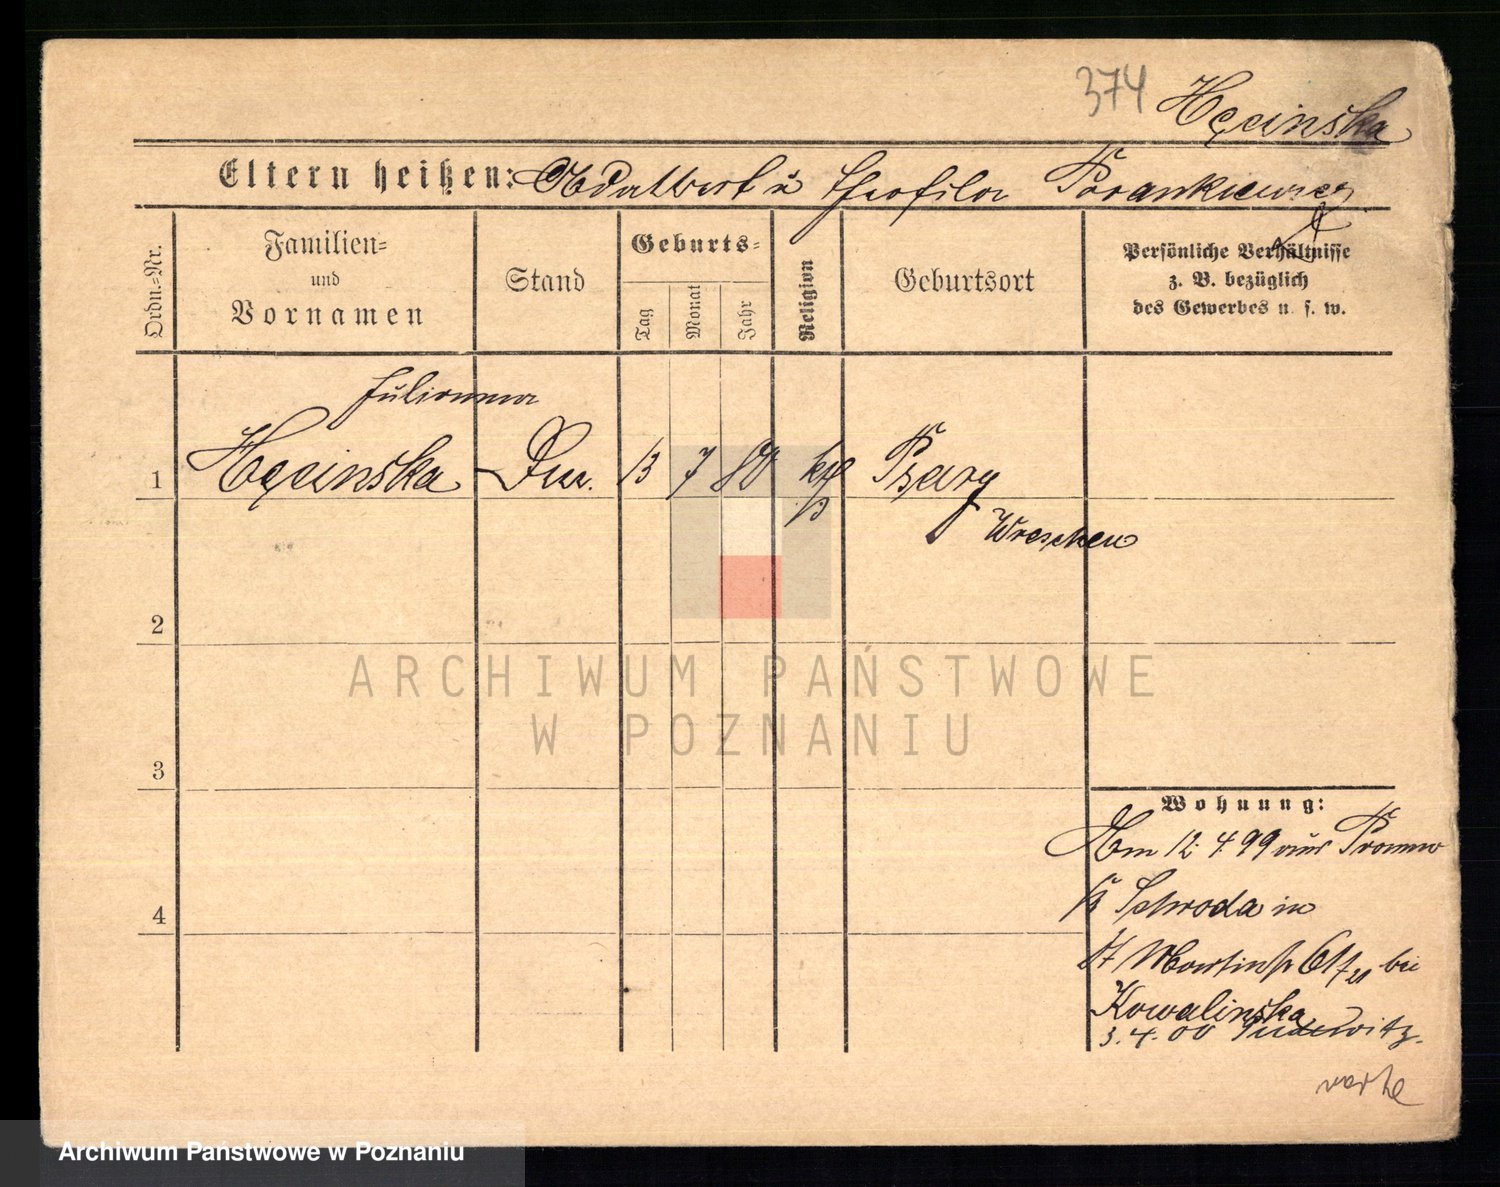 374 Hęcinska
Eltern heißen: Adalbert u Theofila Porankiewicz
Ordn.-Nr.
Familien-
und
Vornamen
Stand
Geburts-
Tag
Monat
Jahr
Religion
Geburtsort
Persönliche Verhältnisse
z. B. bezüglich
des Gewerbes u. s. w.
Julianna
1 Hęcinska 13 7 80 kth Psary
Wreschen
2
3
4
Wohnung:
Am 12. 4. 99 aus
Schroda in
St Martinstr 61 bei
Kowalinska
3. 4. 00 Pudewitz.
ARCHIWUM PAŃSTWOWE
W POZNANIU
Archiwum Państwowe w Poznaniu